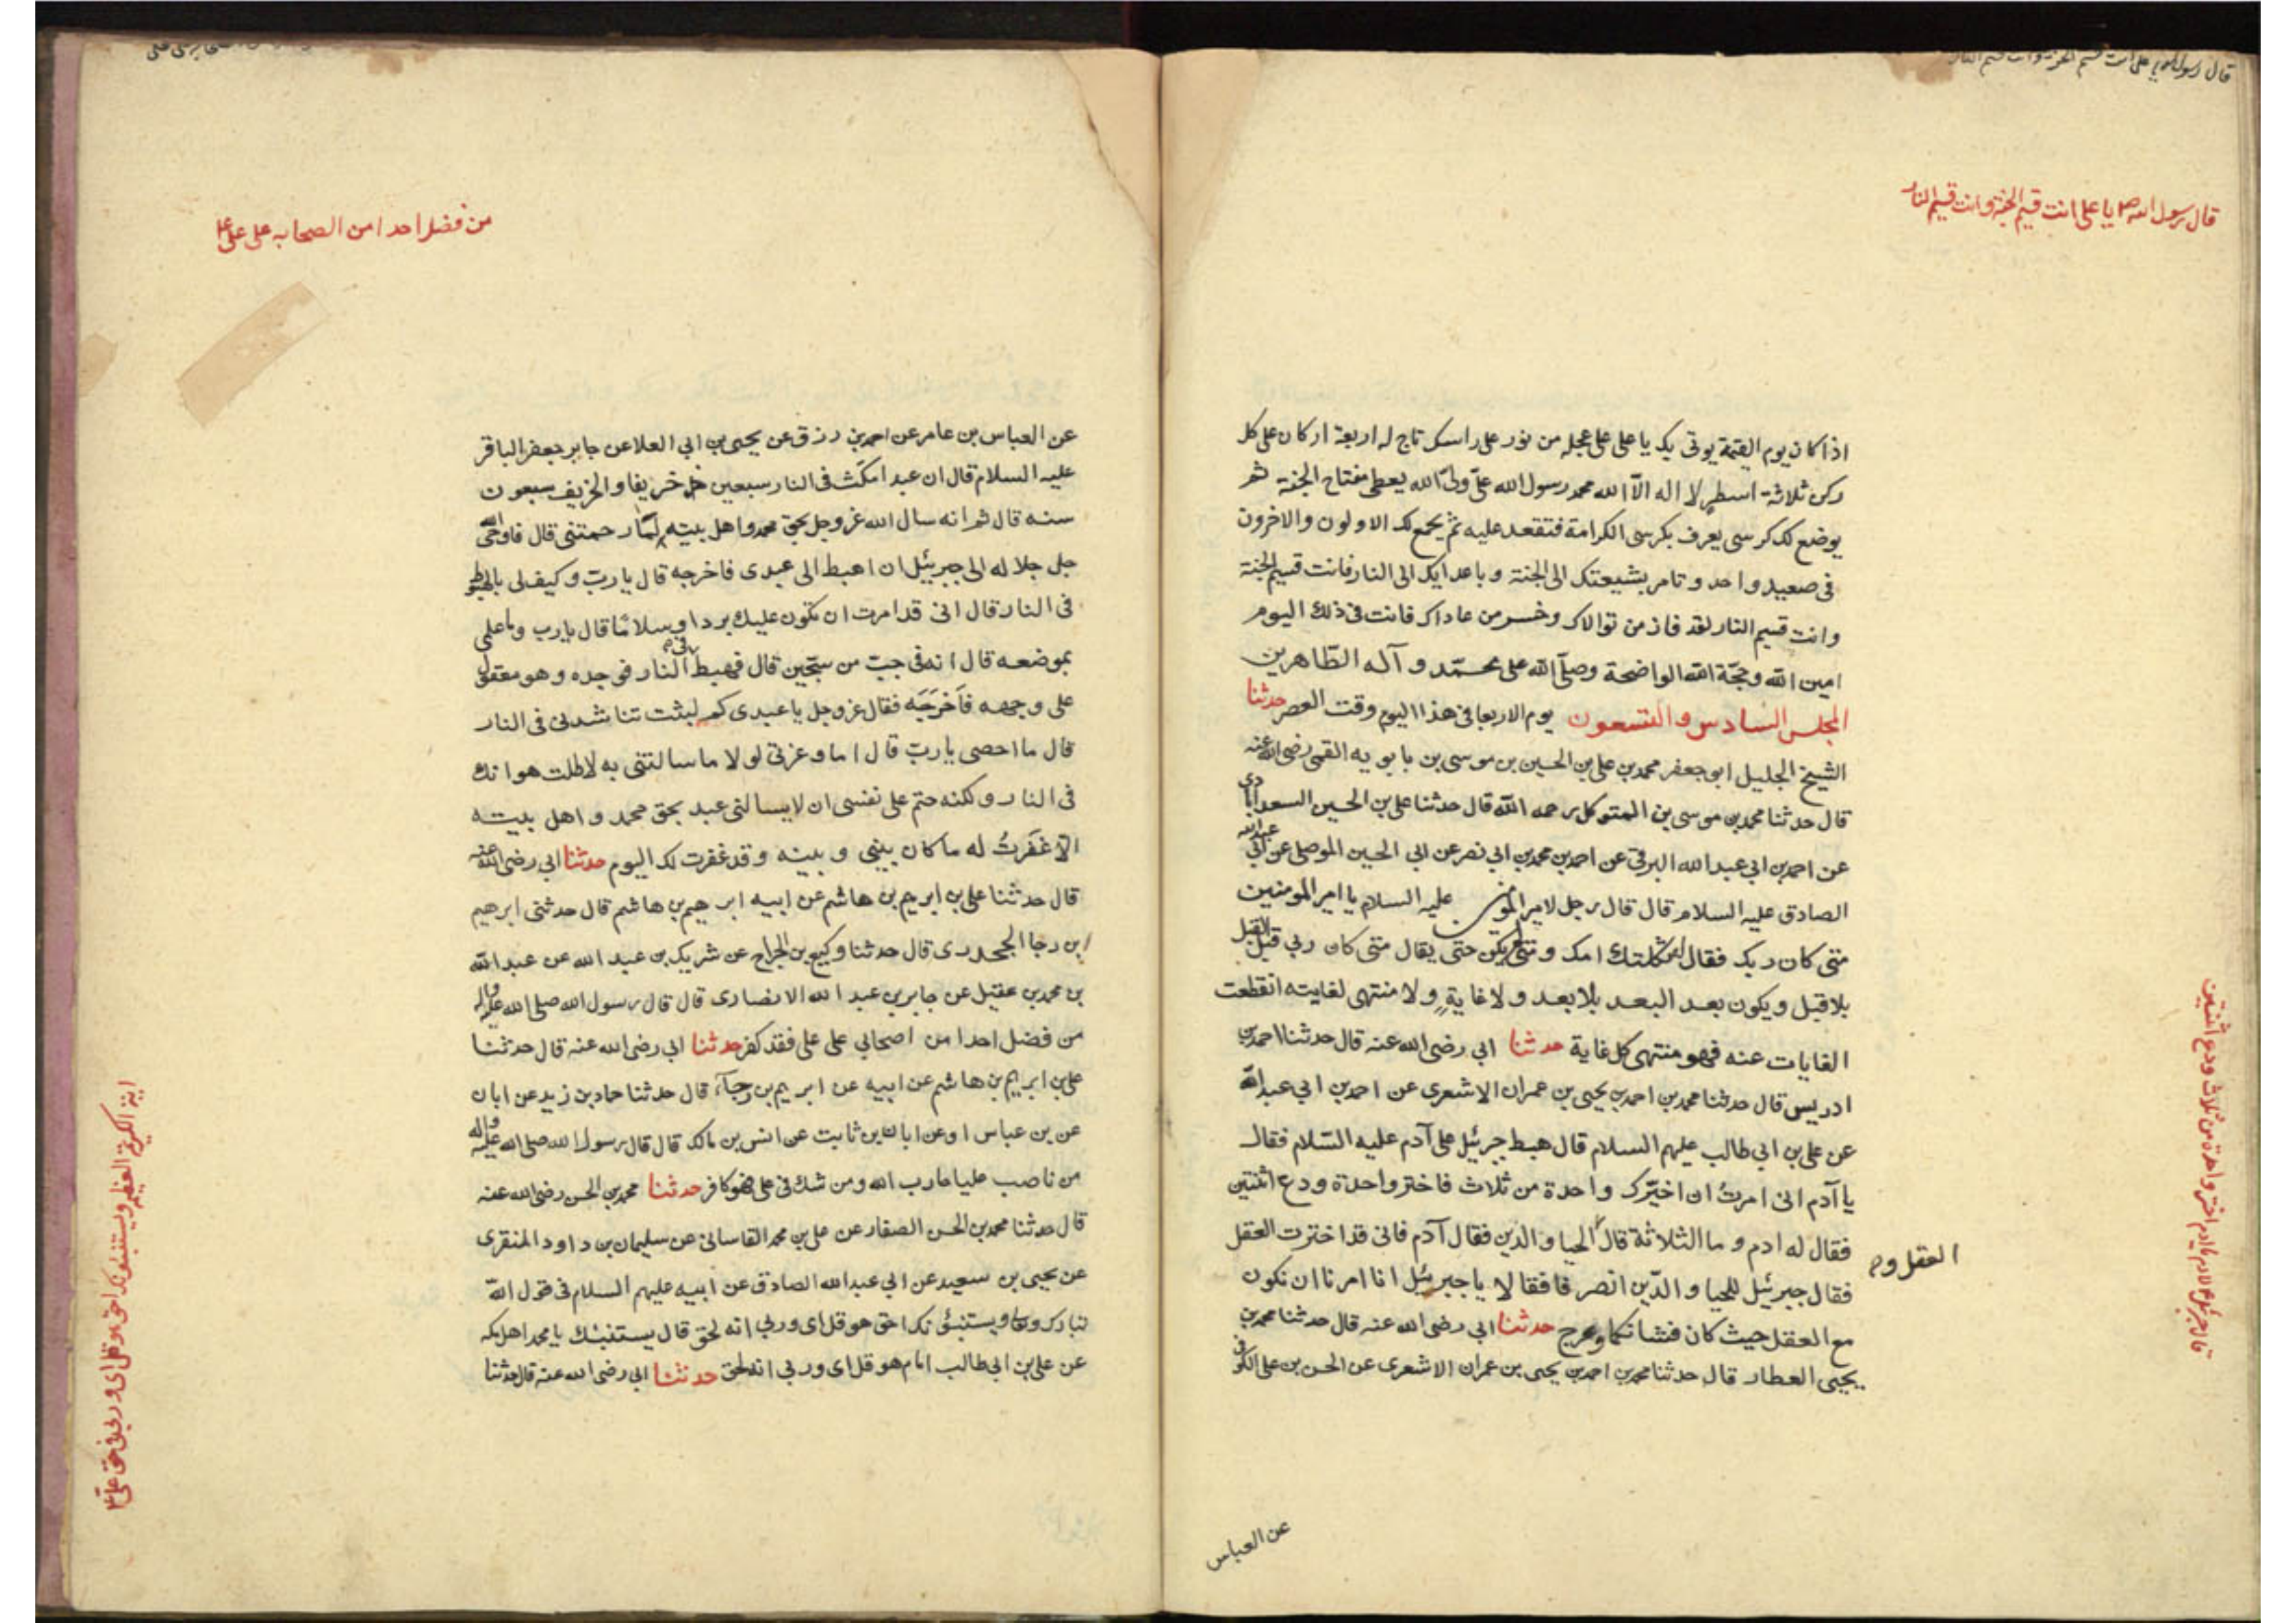 قال رسول الله ص يا على انت قسيم الجنة وانت قسيم النار
اذا كان يوم القيمة يوتى بك يا على على عجله من نور على راسك تاج له اربعة اركان على كل
ركن ثلاثة اسطر لا اله الّا الله محمد رسول الله علىّ ولىّ الله يعطى مفتاح الجنة ثم
يوضع لك كرسى يعرف بكرسى الكرامة فتقعد عليه ثم يجمع لك الاولون والاخرون
فى صعيد واحد و تامر بشيعتك الى الجنة و باعدايك الى النار فانت قسيم الجنة
وانت قسيم النار لقد فاز من توالاك وخسر من عاداك فانت فى ذلك اليوم
امين الله وحجّة الله الواضحة وصلّى الله على محمّد و آله الطّاهرين
المجلس السادس والتسعون يوم الاربعا فى هذا اليوم وقت العصر حدثنا
الشيخ الجليل ابو جعفر محمد بن على بن الحسين بن موسى بن بابويه القمى رضى الله عنه
قال حدثنا محمد بن موسى بن المتوكل رحمه الله قال حدثنا على بن الحسين السعدابادى
عن احمد بن ابى عبد الله البرقى عن احمد بن محمد بن ابى نصر عن ابى الحسين الموصلى عن ابى عبد الله
الصادق عليه السلام قال قال رجل لامير المومنين عليه السلام يا امير المومنين
متى كان ربك فقال له ثكلتك امك و متى لم يكن حتى يقال متى كان ربى قبل القبل
بلا قبل ويكون بعد البعد بلا بعد ولا غايةٍ ولا منتهى لغايته انقطعت
الغايات عنه فهو منتهى كل غاية حدثنا ابى رضى الله عنه قال حدثنا احمد بن
ادريس قال حدثنا محمد بن احمد بن يحيى بن عمران الاشعرى عن احمد بن ابى عبد الله
عن على بن ابى طالب عليهم السلام قال هبط جبرئيل على آدم عليه السّلام فقال
يا آدم انى امرتُ ان اخيّرك واحدة من ثلاث فاختر واحدة ودع اثنتين
فقال له ادم و ما الثلاثة قال الحيا والدين فقال آدم فانى قد اخترت العقل
العقل و
فقال جبرئيل للحيا والدّين انصرفا فقالا يا جبرئيل انا امرنا ان نكون
مع العقل حيث كان فشانكما وعرج حدثنا ابى رضى الله عنه قال حدثنا محمد بن
يحيى العطار قال حدثنا محمد بن احمد بن يحيى بن عمران الاشعرى عن الحسن بن على الكوفى
عن العباس
قال جبرئيل لادم يا ادم اختر واحدة من ثلاث ودع اثنتين
من فضل احدا من الصحابه على على ع
عن العباس بن عامر عن احمد بن رزق عن يحيى بن ابى العلا عن جابر جعفر الباقر
عليه السلام قال ان عبدا مكث فى النار سبعين خريفا والخريف سبعون
سنه قال ثم انه سال الله عز وجل بحق محمد واهل بيته لمّا رحمتنى قال فاوحى الله
جل جلاله الى جبرئيل ان اهبط الى عبدى فاخرجه قال يا ربّ وكيف لى بالهبوط
فى النار قال انى قد امرت ان تكون عليك بردا وسلامًا قال يا رب وما علمى
بموضعه قال انه فى جبّ من سجّين قال فهبط فى النار فوجده وهو معقول
على وجهه فَاَخرَجَه فقال عز وجل يا عبدى كم لبثت تناشدنى فى النار
قال ما احصى يا ربّ قال اما وعزتى لولا ما سالتنى به لاطلت هوانك
فى النار ولكنه حتم على نفسى ان لا يسالنى عبد بحق محمد و اهل بيته
الّا غفرتُ له ما كان بينى و بينه وقد غفرت لك اليوم حدثنا ابى رضى الله عنه
قال حدثنا على بن ابرهيم بن هاشم عن ابيه ابرهيم بن هاشم قال حدثنى ابرهيم
ابن رجا الجحدرى قال حدثنا وكيع بن الجراح عن شريك بن عبد الله عن عبد الله
بن محمد بن عقيل عن جابر بن عبد الله الانصارى قال قال رسول الله صلى الله عليه واله
من فضل احدا من اصحابى على على فقد كفر حدثنا ابى رضى الله عنه قال حدثنا
على بن ابرهيم بن هاشم عن ابيه عن ابرهيم بن رجآء قال حدثنا حماد بن زيد عن ابان
عن بن عباس او عن ابان بن ثابت عن انس بن مالك قال قال رسول الله صلى الله عليه واله
من ناصب عليا حارب الله ومن شك فى على فهو كافر حدثنا محمد بن الحسن رضى الله عنه
قال حدثنا محمد بن الحسن الصفار عن على بن محمد القاسانى عن سليمان بن داود المنقرى
عن يحيى بن سعيد عن ابى عبد الله الصادق عن ابيه عليهم السلام فى قول الله
تبارك وتعا ويستنبئونك احق هو قل اى وربى انه لحق قال يستنبئك يا محمد اهل مكه
عن على بن ابى طالب امام هو قل اى وربى انه لحق حدثنا ابى رضى الله عنه قال حدثنا
ويستنبئونك احق هو قل اى وربى فى حق على ع